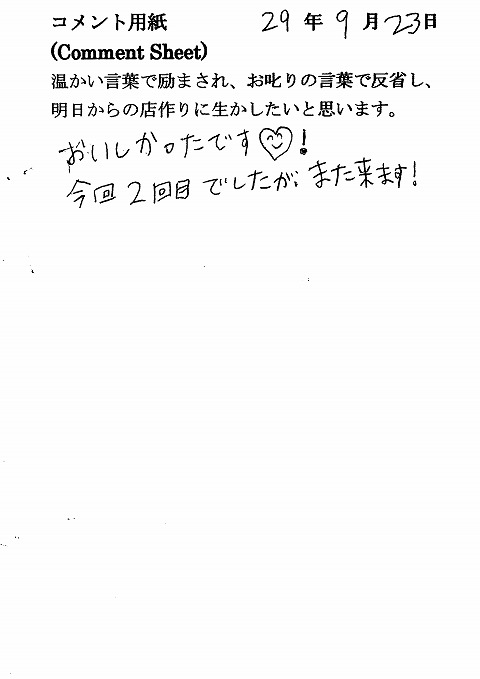 コメント用紙 29年9月23日
(Comment Sheet)
温かい言葉で励まされ、お叱りの言葉で反省し、
明日からの店作りに生かしたいと思います。
おいしかったです♡!
今回2回目でしたが、また来ます!